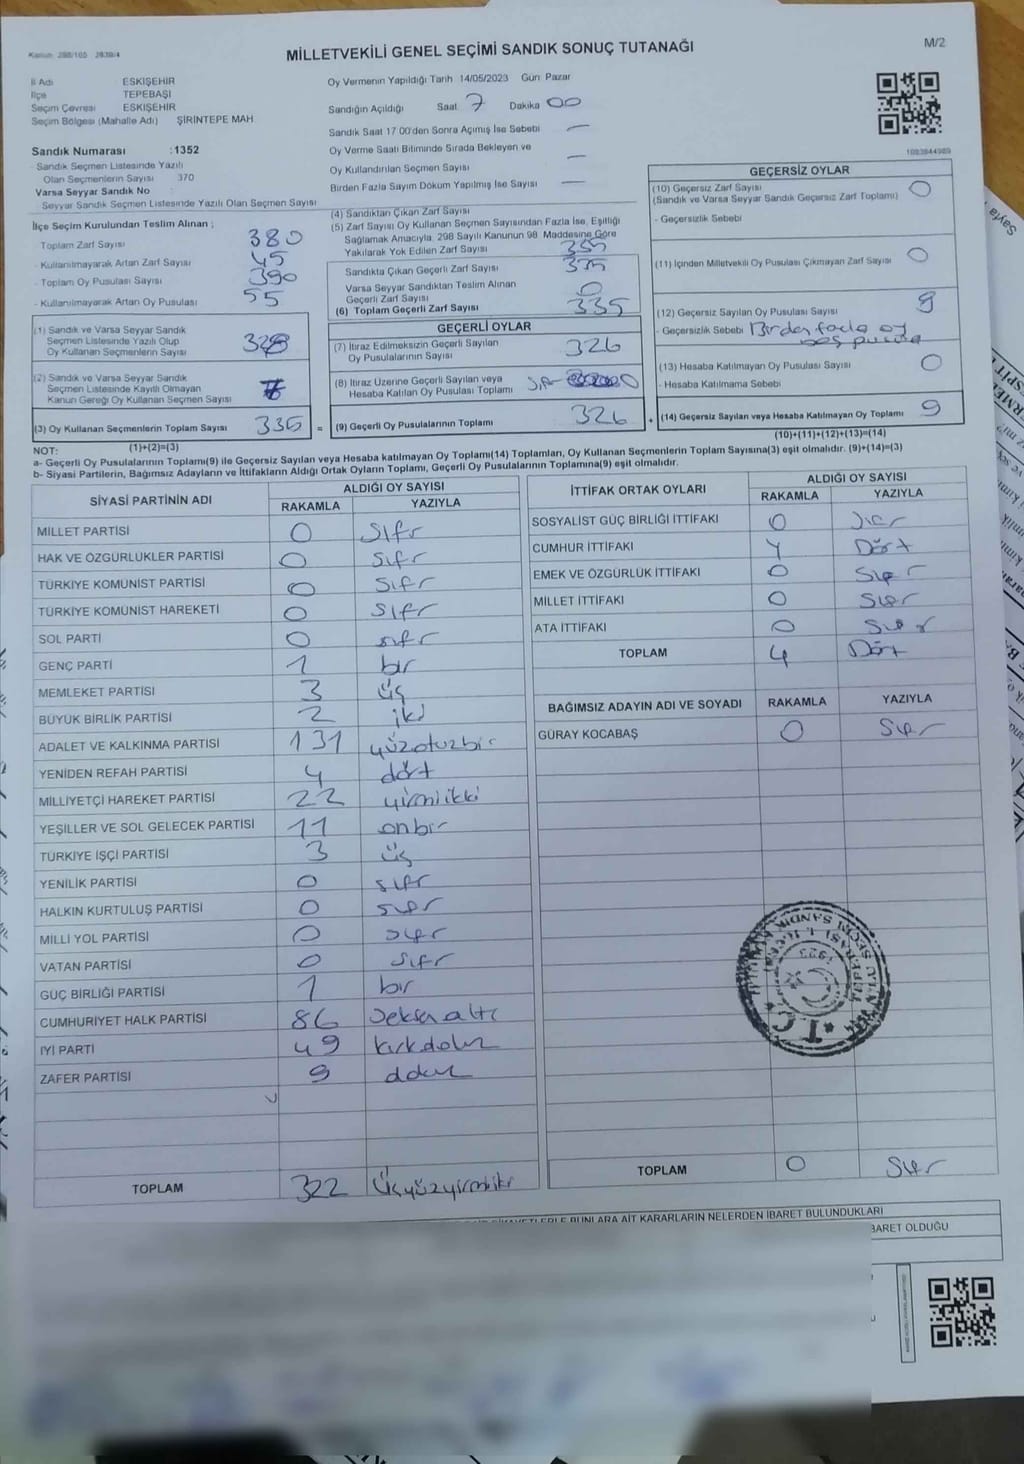 Kanun: 298/105 2839/4
MİLLETVEKİLİ GENEL SEÇİMİ SANDIK SONUÇ TUTANAĞI
M/2
İl Adı ESKİŞEHİR
İlçe TEPEBAŞI
Seçim Çevresi ESKİŞEHİR
Seçim Bölgesi (Mahalle Adı) ŞİRİNTEPE MAH
Sandık Numarası : 1352
Sandık Seçmen Listesinde Yazılı
Olan Seçmenlerin Sayısı 370
Varsa Seyyar Sandık No
Seyyar Sandık Seçmen Listesinde Yazılı Olan Seçmen Sayısı
Oy Vermenin Yapıldığı Tarih 14/05/2023 Gün: Pazar
Sandığın Açıldığı Saat 7 Dakika 00
Sandık Saat 17 00'den Sonra Açımış İse Sebebi —
Oy Verme Saati Bitiminde Sırada Bekleyen ve
Oy Kullandırılan Seçmen Sayısı —
Birden Fazla Sayım Döküm Yapılmış İse Sayısı —
1093844989
İlçe Seçim Kurulundan Teslim Alınan ;
- Toplam Zarf Sayısı 380
- Kullanılmayarak Artan Zarf Sayısı 45
- Toplam Oy Pusulası Sayısı 390
- Kullanılmayarak Artan Oy Pusulası 55
(1) Sandık ve Varsa Seyyar Sandık
Seçmen Listesinde Yazılı Olup
Oy Kullanan Seçmenlerin Sayısı 328
(2) Sandık ve Varsa Seyyar Sandık
Seçmen Listesinde Kayıtlı Olmayan
Kanun Gereği Oy Kullanan Seçmen Sayısı 7
(3) Oy Kullanan Seçmenlerin Toplam Sayısı 335 =
(4) Sandıktan Çıkan Zarf Sayısı
(5) Zarf Sayısı Oy Kullanan Seçmen Sayısından Fazla İse, Eşitliği
Sağlamak Amacıyla, 298 Sayılı Kanunun 98. Maddesine Göre
Yakılarak Yok Edilen Zarf Sayısı
Sandıkta Çıkan Geçerli Zarf Sayısı
Varsa Seyyar Sandıktan Teslim Alınan
Geçerli Zarf Sayısı 0
(6) Toplam Geçerli Zarf Sayısı 335
GEÇERLİ OYLAR
(7) İtiraz Edilmeksizin Geçerli Sayılan
Oy Pusulalarının Sayısı 326
(8) İtiraz Üzerine Geçerli Sayılan veya
Hesaba Katılan Oy Pusulası Toplamı
(9) Geçerli Oy Pusulalarının Toplamı 326 +
GEÇERSİZ OYLAR
(10) Geçersiz Zarf Sayısı 0
(Sandık ve Varsa Seyyar Sandık Geçersiz Zarf Toplamı)
- Geçersizlik Sebebi
(11) İçinden Milletvekili Oy Pusulası Çıkmayan Zarf Sayısı 0
(12) Geçersiz Sayılan Oy Pusulası Sayısı 9
- Geçersizlik Sebebi Birden fazla oy
boş pusula
(13) Hesaba Katılmayan Oy Pusulası Sayısı 0
- Hesaba Katılmama Sebebi
(14) Geçersiz Sayılan veya Hesaba Katılmayan Oy Toplamı 9
(10)+(11)+(12)+(13)=(14)
NOT: (1)+(2)=(3)
a- Geçerli Oy Pusulalarının Toplamı(9) ile Geçersiz Sayılan veya Hesaba katılmayan Oy Toplamı(14) Toplamları, Oy Kullanan Seçmenlerin Toplam Sayısına(3) eşit olmalıdır. (9)+(14)=(3)
b- Siyasi Partilerin, Bağımsız Adayların ve İttifakların Aldığı Ortak Oyların Toplamı, Geçerli Oy Pusulalarının Toplamına(9) eşit olmalıdır.
SİYASİ PARTİNİN ADI ALDIĞI OY SAYISI
RAKAMLA YAZIYLA
MİLLET PARTİSİ 0 sıfır
HAK VE ÖZGÜRLÜKLER PARTİSİ 0 sıfır
TÜRKİYE KOMÜNİST PARTİSİ 0 sıfır
TÜRKİYE KOMÜNİST HAREKETİ 0 sıfır
SOL PARTİ 0 sıfır
GENÇ PARTİ 1 bir
MEMLEKET PARTİSİ 3 üç
BÜYÜK BİRLİK PARTİSİ 2 iki
ADALET VE KALKINMA PARTİSİ 131 yüzotuzbir
YENİDEN REFAH PARTİSİ 4 dört
MİLLİYETÇİ HAREKET PARTİSİ 22 yirmiikki
YEŞİLLER VE SOL GELECEK PARTİSİ 11 onbir
TÜRKİYE İŞÇİ PARTİSİ 3 üç
YENİLİK PARTİSİ 0 sıfır
HALKIN KURTULUŞ PARTİSİ 0 sıfır
MİLLİ YOL PARTİSİ 0 sıfır
VATAN PARTİSİ 0 sıfır
GÜÇ BİRLİĞİ PARTİSİ 1 bir
CUMHURİYET HALK PARTİSİ 86 seksenaltı
İYİ PARTİ 49 kırkdokuz
ZAFER PARTİSİ 9 dokuz
TOPLAM 322 Üçyüzyirmiiki
İTTİFAK ORTAK OYLARI ALDIĞI OY SAYISI
RAKAMLA YAZIYLA
SOSYALİST GÜÇ BİRLİĞİ İTTİFAKI 0 Sıfır
CUMHUR İTTİFAKI 4 Dört
EMEK VE ÖZGÜRLÜK İTTİFAKI 0 Sıfır
MİLLET İTTİFAKI 0 Sıfır
ATA İTTİFAKI 0 Sıfır
TOPLAM 4 Dört
BAĞIMSIZ ADAYIN ADI VE SOYADI RAKAMLA YAZIYLA
GÜRAY KOCABAŞ 0 Sıfır
T.C.
TOPLAM 0 Sıfır
BUNLARA AİT KARARLARIN NELERDEN İBARET BULUNDUKLARI
BARET OLDUĞU